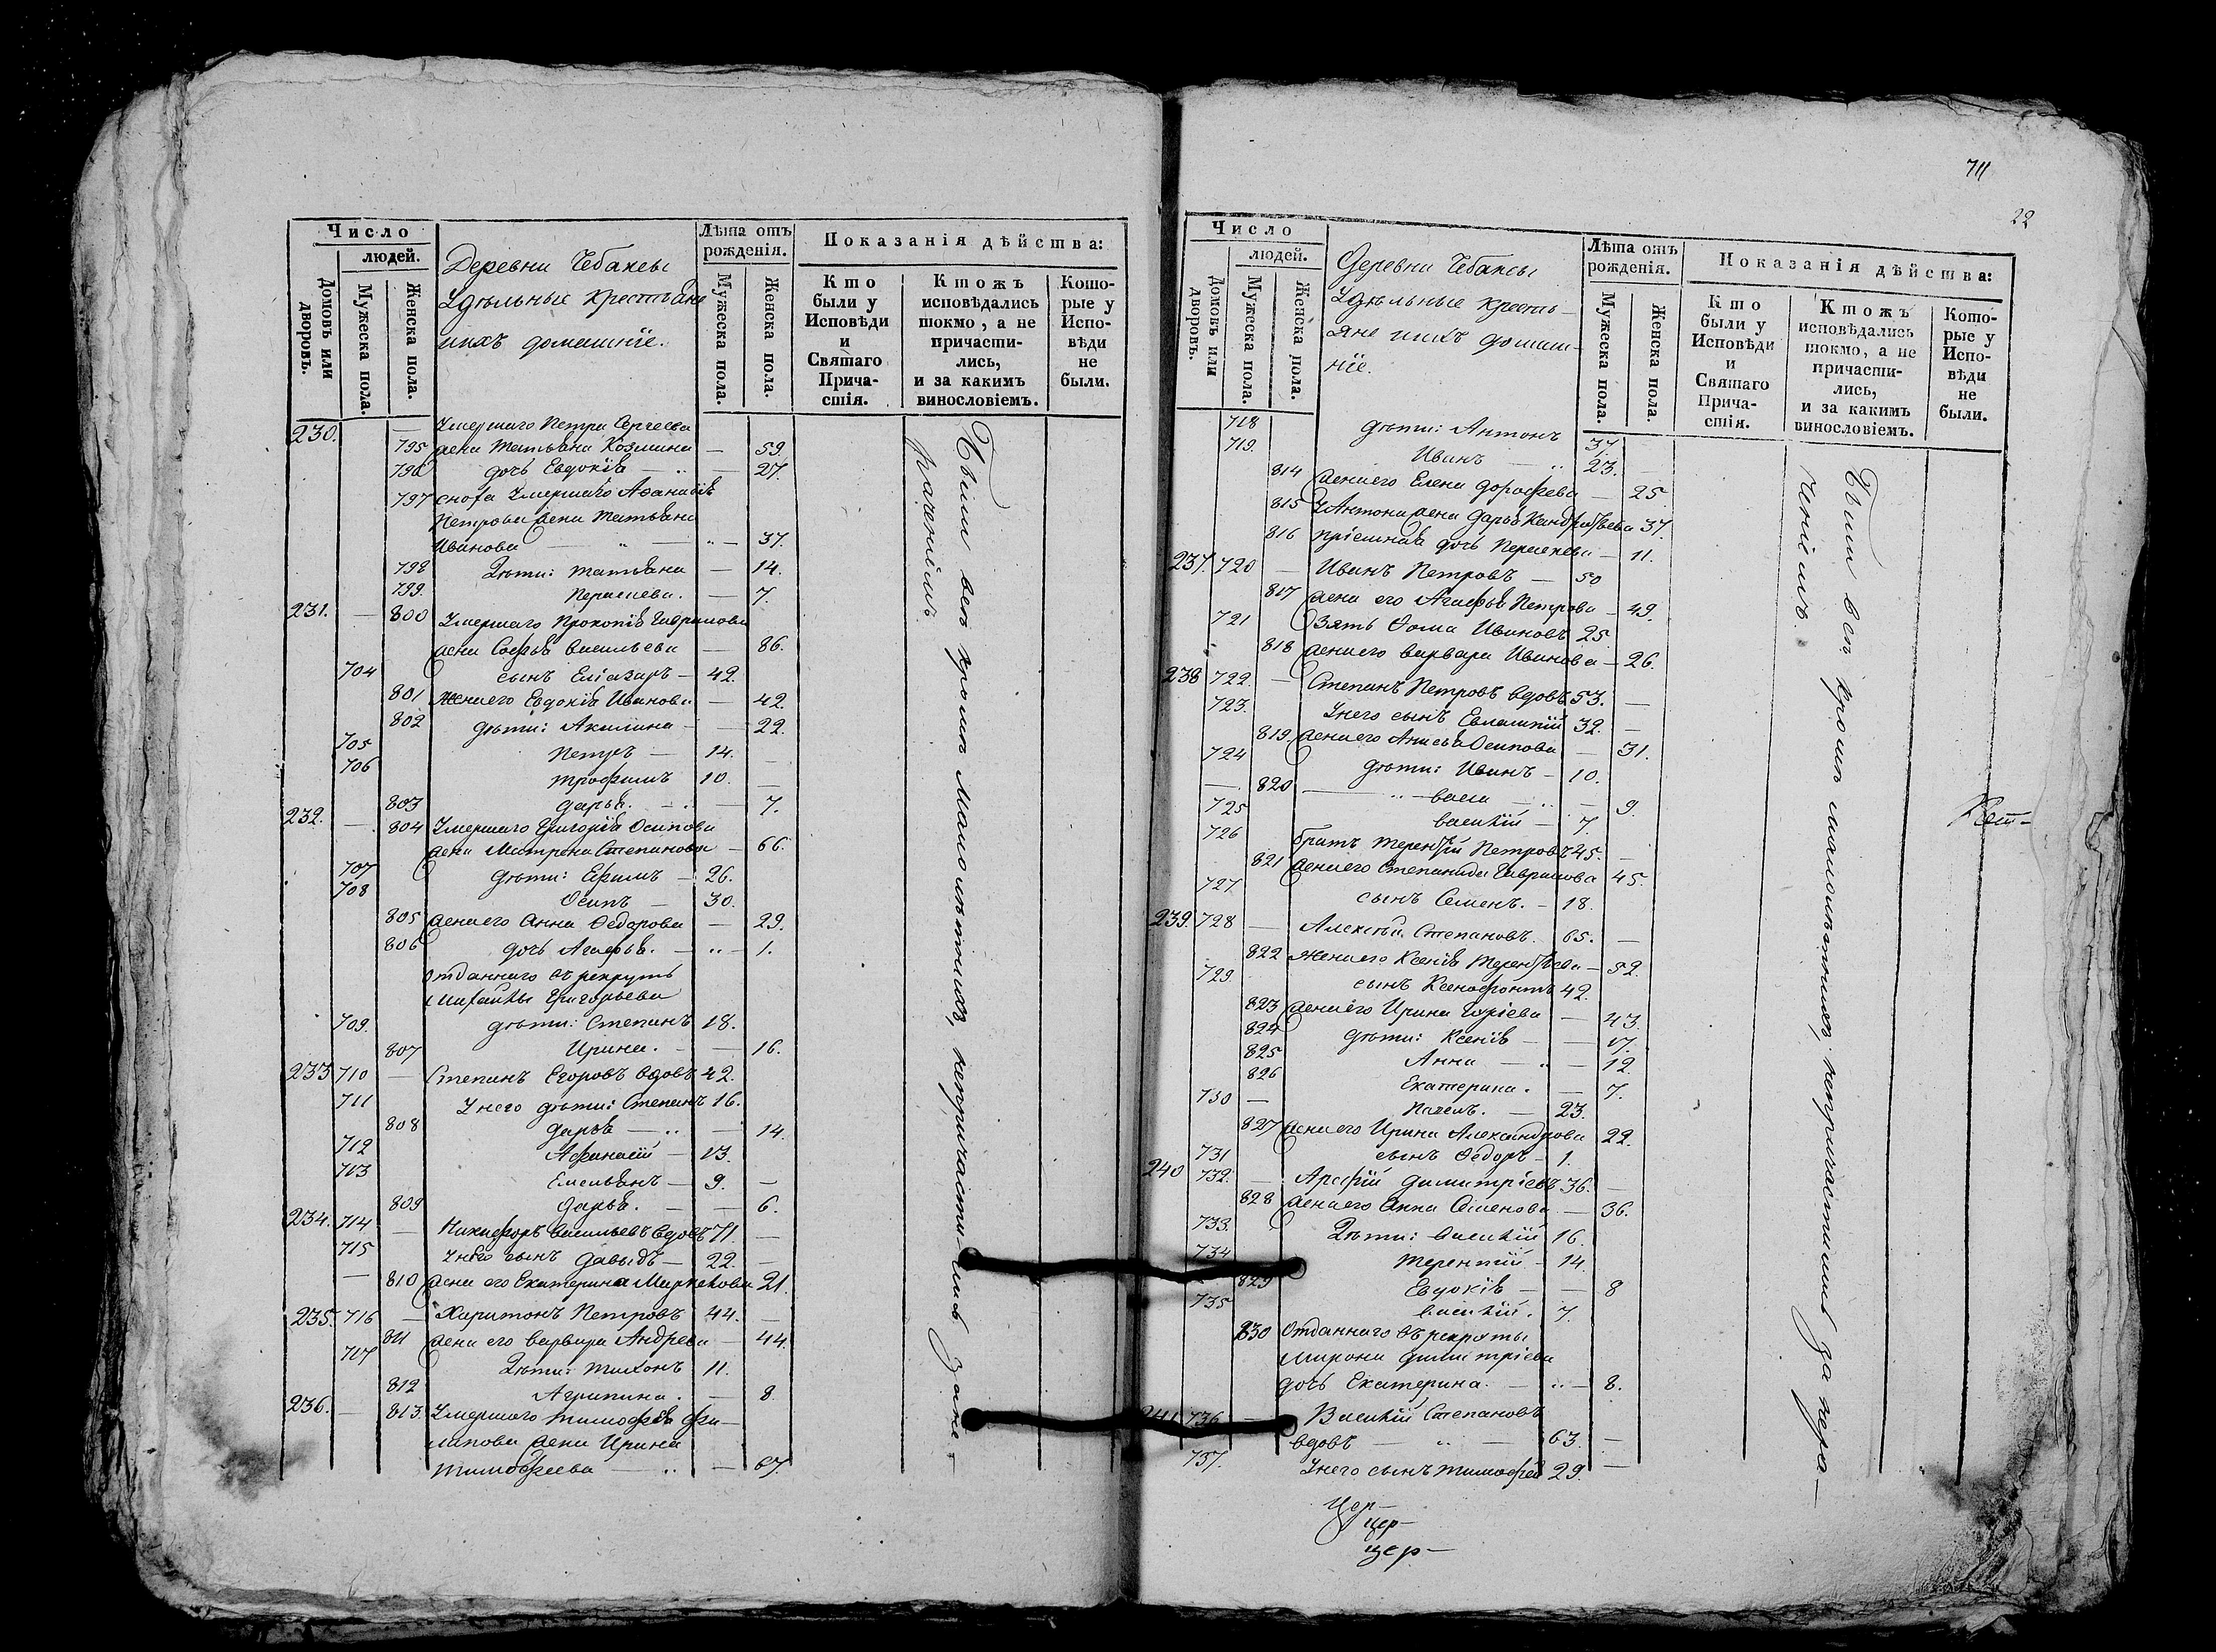 Число
людей.
Домовъ или дворовъ.
Мужеска пола.
Женска пола.
Деревни Чебаксы
Удѣльные крестьяне
ихъ домашніе.
Лѣта отъ рожденія.
Мужеска пола.
Женска пола.
Показанія дѣйства:
Кто были у Исповѣди и Святаго Причастія.
Ктожъ исповѣдались токмо, а не причастились, и за какимъ винословіемъ.
Которые у Исповѣди не были.
230. — Умершаго Петра Сергеева
795 жена Татьяна Козмина — 59.
796 дочь Евдокія — „ — 27.
797 сноха Умершаго Афанасія
Петрова жена Татьяна
Иванова — „ — „ — 37.
798 Дѣти: Татьяна — 14.
799. Парасцева. — 7.
231. — 800 Умершаго Прокопія Гаврилова
жена Софья Васильева — 86.
704 сынъ Еліазаръ — 42.
801 жена его Евдокія Иванова — 42.
802 дѣти: Акилина — — 22.
705 Петръ — 14. —
706 Трофимъ 10. —
803 Дарья. — „ — 7.
232. — 804 Умершаго Григорія Осипова
жена Матрена Степанова — 66.
707 дѣти: Ефимъ — 26.
708 Осипъ — 30.
805 жена его Анна Федорова — 29.
806 дочь Агафья. — „ — 1.
отданнаго въ рекруты
Михайлы Григорьева
709. дѣти: Степанъ 18.
807 Ирина. — — 16.
233 710 — Степанъ Егоровъ вдовъ 42.
711 У него дѣти: Степанъ 16.
808 Дарья — „ — 14.
712 Афанасій — 13.
713 Емельянъ — 9. —
809 Дарья. — — 6.
234. 714 — Никифоръ Васильевъ вдовъ 71. —
715 У него сынъ Давыдъ — 22. —
— 810 жена его Екатерина Маркелова 21.
235. 716 — Харитонъ Петровъ 44. —
811 жена его Варвара Андреева — 44.
717 Дѣти: Тихонъ 11.
812 Агрипина. — 8.
236. — 813. Умершаго Тимофея Фи-
липова жена Ирина
Тимофеева — „ — 67.
Были всѣ кромѣ малолѣтныхъ, непричастились за не-
раченіемъ
711
22
Число
людей.
Домовъ или дворовъ.
Мужеска пола.
Женска пола.
Деревни Чебаксы
Удѣльные кресть-
яне ихъ домаш-
ніе.
Лѣта отъ рожденія.
Мужеска пола.
Женска пола.
Показанія дѣйства:
Кто были у Исповѣди и Святаго Причастія.
Ктожъ исповѣдались токмо, а не причастились, и за какимъ винословіемъ.
Которые у Исповѣди не были.
718 дѣти: Антонъ 37. —
719. Иванъ — „ 23. —
814 жена его Елена Дорофеева — 25.
815 У Антона жена Дарья Кандратьева 37.
816 пріемная дочь Парасцева — 11.
237. 720 — Иванъ Петровъ — 50
817 жена его Агафья Петрова — 49.
721 Зять Фома Ивановъ 25.
818 жена его Варвара Иванова — 26.
238 722. — Степанъ Петровъ вдовъ 53. —
723. У него сынъ Евлампій 32. —
819 жена его Анисья Осипова — 31.
724 дѣти: Иванъ — 10.
— 820 — „ — Васса — „ — 9.
725 Василій — 7.
726 братъ Терентій Петровъ 45. —
821 жена его Степанида Гаврилова 45.
727 сынъ Семенъ. — 18.
239. 728 — Алексѣй Степановъ. 65. —
822 жена его Ксенія Терентьева — 52.
729. сынъ Ксенофонтъ 42.
823 жена его Ирина Юріева — 43.
824 дѣти: Ксенія — — 17.
825 Анна — „ — 12
826 Екатерина. — 7.
730 — Павелъ. — 23.
827 жена его Ирина Александрова 22.
731 сынъ Федоръ — 1.
240 732. — Арефій Димитріевъ 36. —
828 жена его Анна Семенова — 36.
733. Дѣти: Василій 16.
734 Терентій — 14.
829 Евдокія — — 8
735 Василій. 7.
830 отданнаго въ рекруты
Мирона Димитріева
дочь Екатерина. — „ — 8.
241 736 — Василій Степановъ
вдовъ — „ — 63. —
737. У него сынъ Тимофей 29. —
Были всѣ кромѣ малолѣтныхъ, непричастились за нера-
ченіемъ
Цер-
цер-
цер-